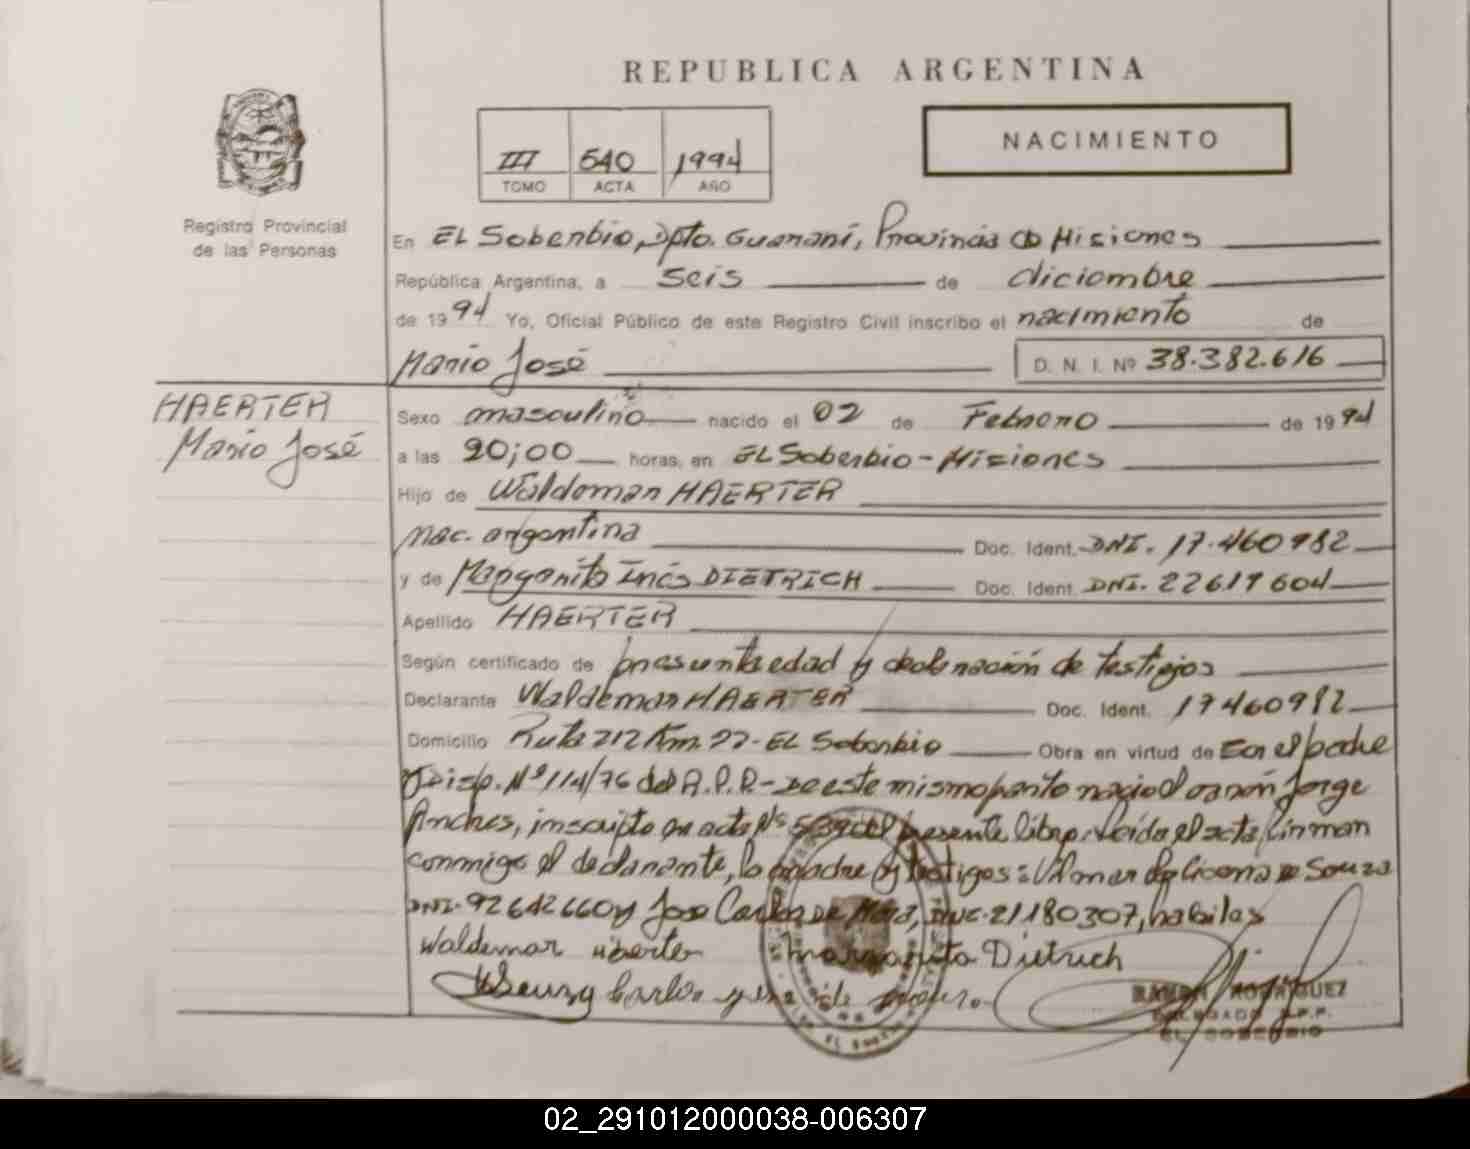 REPUBLICA ARGENTINA
NACIMIENTO
III 540 1994
TOMO ACTA AÑO
Registro Provincial
de las Personas
En EL Soberbio, Dpto. Guaraní, Provincia de Misiones
República Argentina, a seis de diciembre
de 1994 Yo, Oficial Público de este Registro Civil inscribo el nacimiento de
Mario José D. N. I. Nº 38.382.616
HAERTER
Mario José
Sexo masculino nacido el 02 de Febrero de 1994
a las 20;00 horas, en EL Soberbio - Misiones
Hijo de Waldemar HAERTER
nac. argentina Doc. Ident. DNI. 17.460982
y de Margarita Inés DIETRICH Doc. Ident. DNI. 22617604
Apellido HAERTER
Según certificado de presunta edad y declaración de testigos
Declarante Waldemar HAERTER Doc. Ident. 17460982
Domicilio Ruta 212 Km. 22 - EL Soberbio Obra en virtud de Ser el padre
y Disp. Nº 114/76 del R.P.P. - De este mismo parto nació el varón Jorge
Andres, inscripto en acta Nº 539 del presente libro. Leída el acta firman
conmigo el declarante, la madre y testigos: Vilmar de Souza
DNI. 92642660 y Jose Carlos De 21180307, habiles
Waldemar Haerter Margarita Dietrich
Souza Carlos de
RAMON RODRIGUEZ
DELEGADO R.P.P.
EL SOBERBIO
02_291012000038-006307